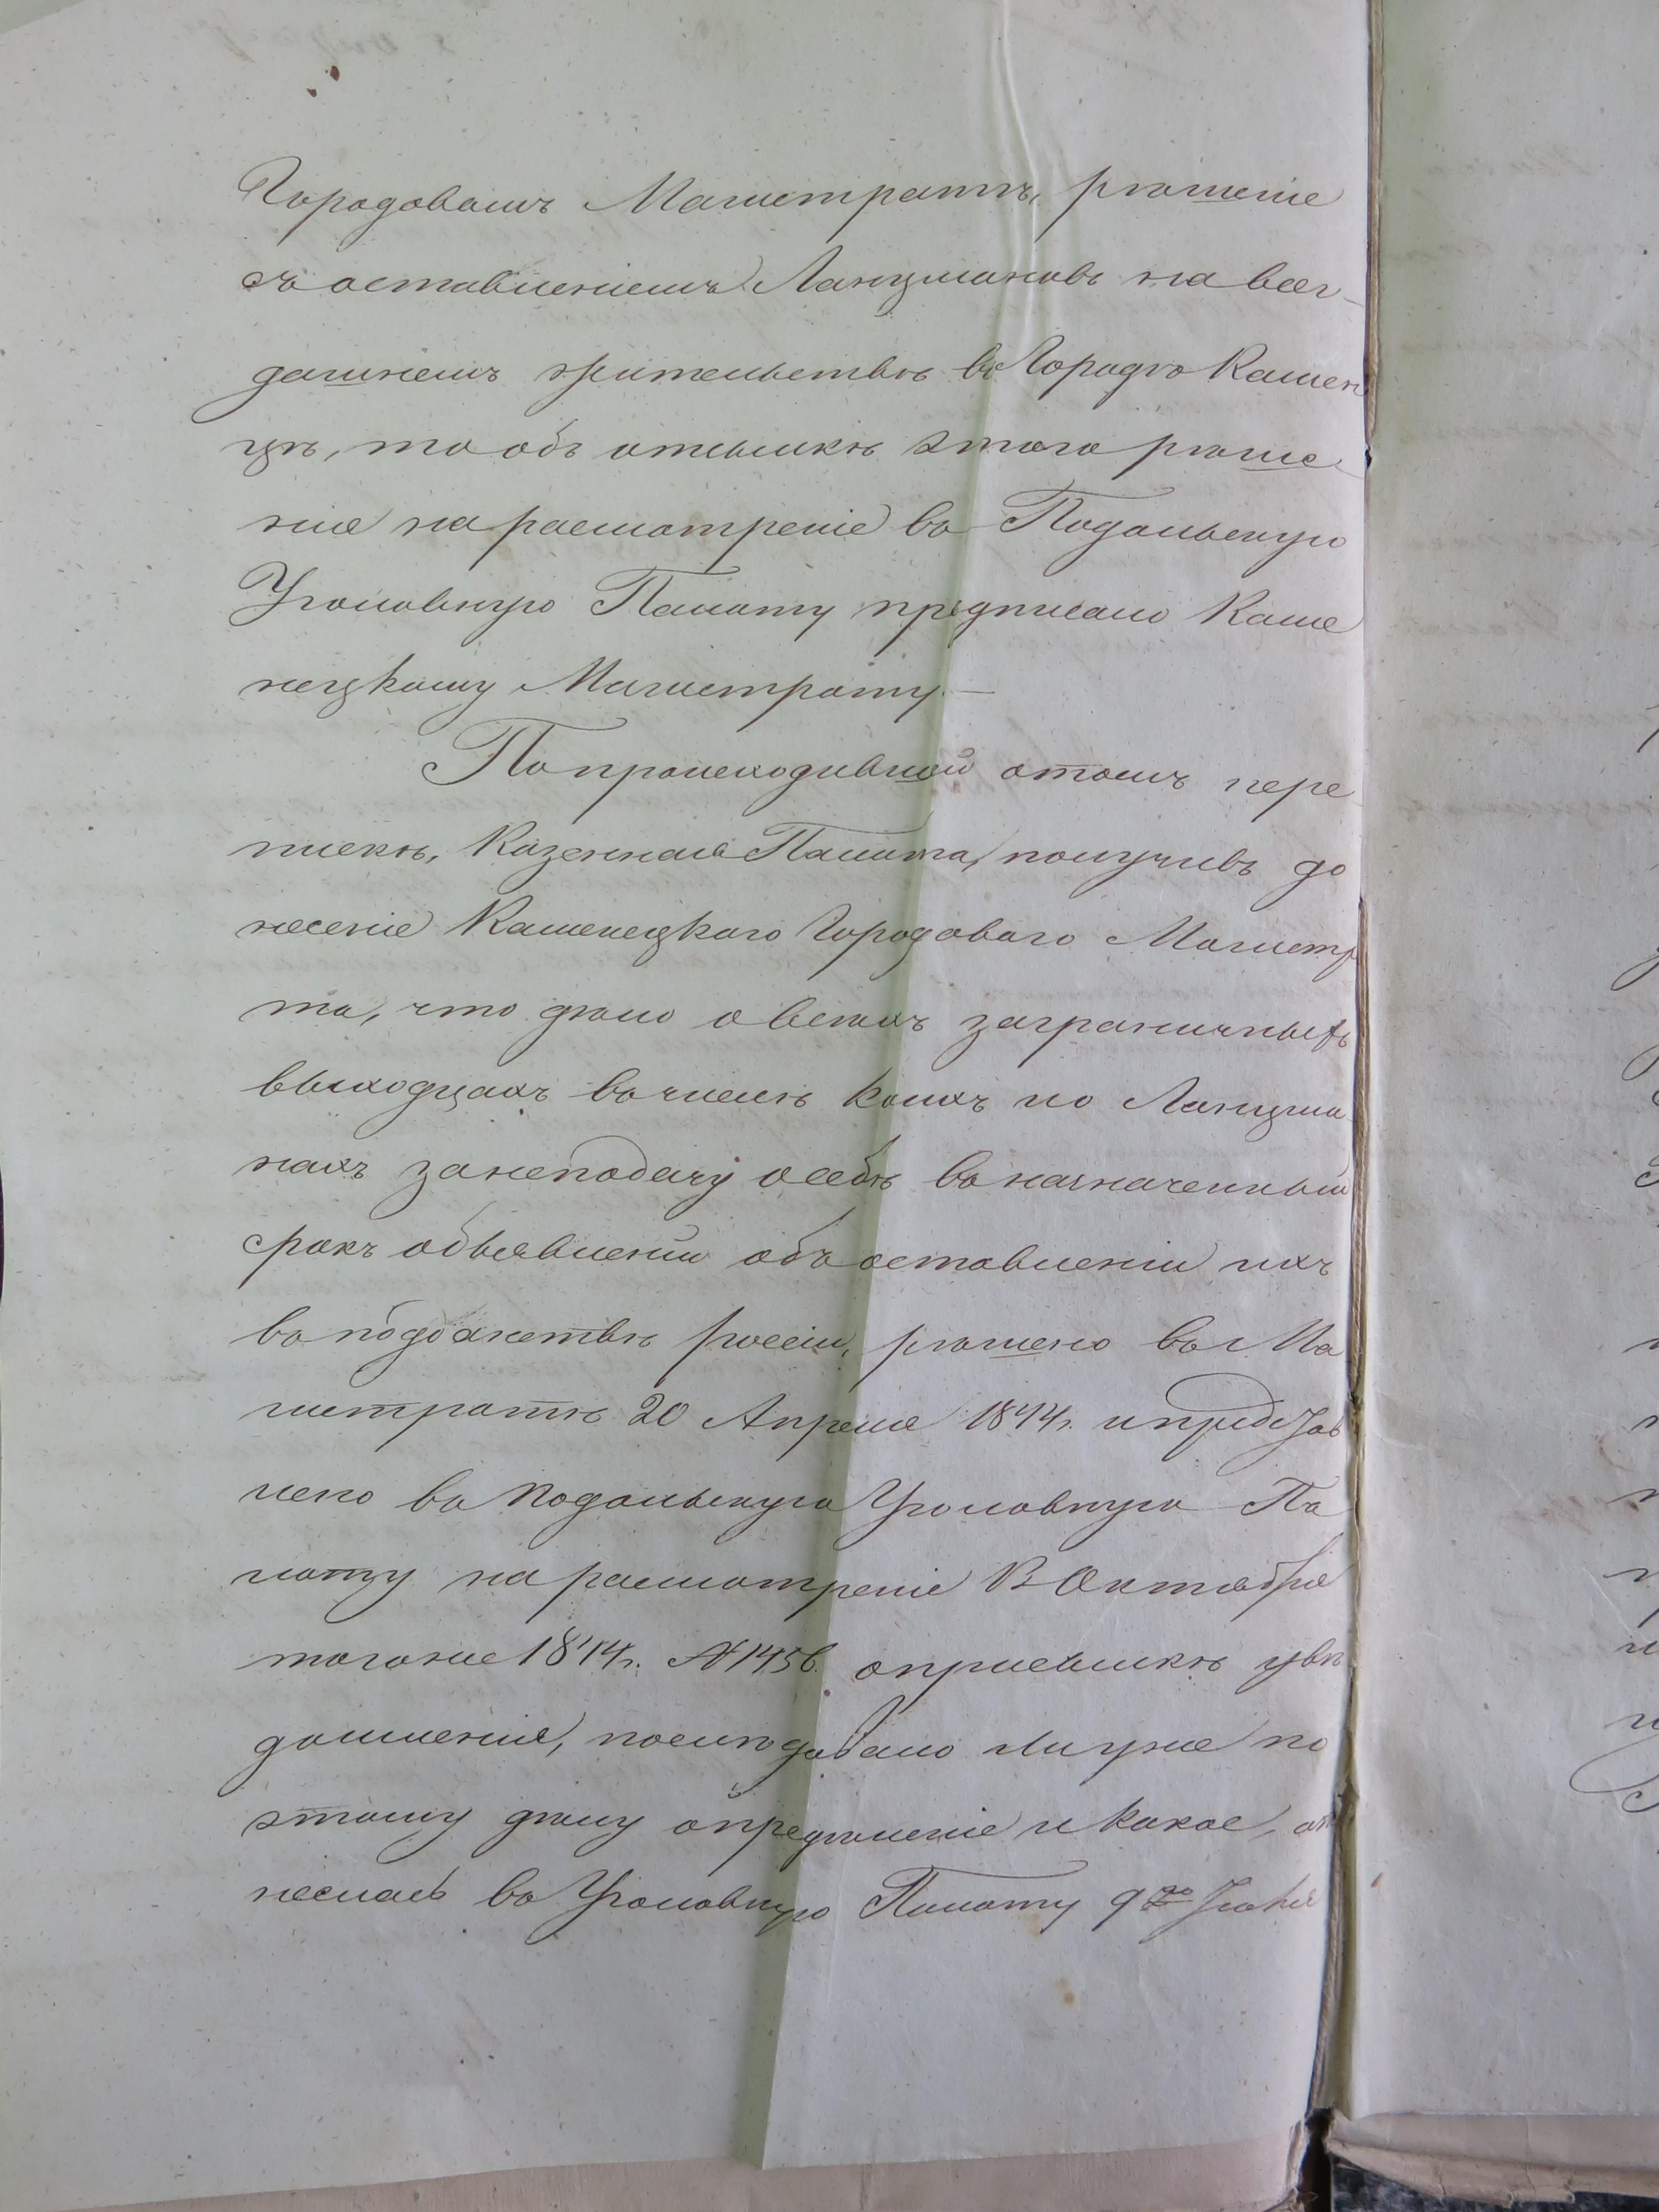 Городовомъ Магистратѣ, рѣшеніе
съ оставленіемъ Ланцмановъ на всег-
дашнемъ жительствѣ въ Городѣ Камен
цѣ, то объ отсылкѣ этого рѣше
нія на расмотреніе въ Подольскую
Уголовную Палату предписано Каме
нецкому Магистрату. —
По происходившой о томъ пере
пискѣ, Казенная Палата, получивъ до
несеніе Каменецкаго Городоваго Магистр
та, что дѣло о всѣхъ заграничныхъ
выходцахъ въ числѣ коихъ и о Ланцма
нахъ за неподачу о себѣ въ назначенный
срокъ объявленій объ оставленіи ихъ
въ подданствѣ россіи, рѣшено въ Ма
гистратѣ 20 Апреля 1844 г. и представ
лено въ Подольскую Уголовную Па
лату на расмотреніе В Октября
того же 1844 г. № 1456. о присылкѣ увѣ
домленія, последовало ли уже по
этому дѣлу опредѣленіе и какое, от
неслась въ Уголовную Палату 9го Іюня